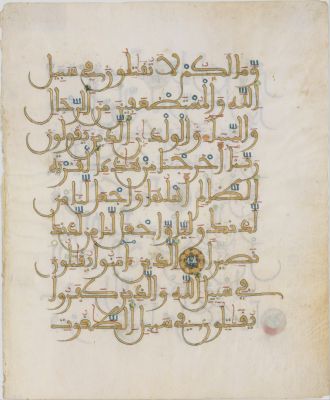 وما لكم لا تقتلون في سبيل
الله والمستضعفين من الرجال
والنساء والولدن الذين يقولون
ربنا اخرجنا من هذه القرية
الظالم اهلها واجعل لنا من
لدنك وليا واجعل لنا من لدنك
نصيرا الذين امنوا يقتلون
في سبيل الله والذين كفروا
يقتلون في سبيل الطغوت